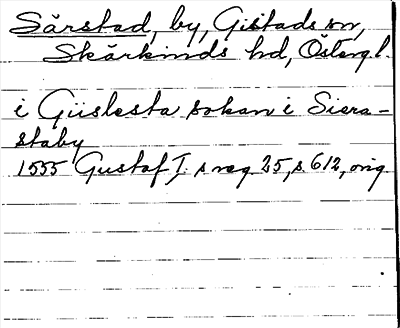 Särstad, by, Gistads sn,
Skärkinds hd, Östergl.
i Güslesta sokan i Siera-
staby
1555 Gustaf I:s reg 25, s. 612, orig